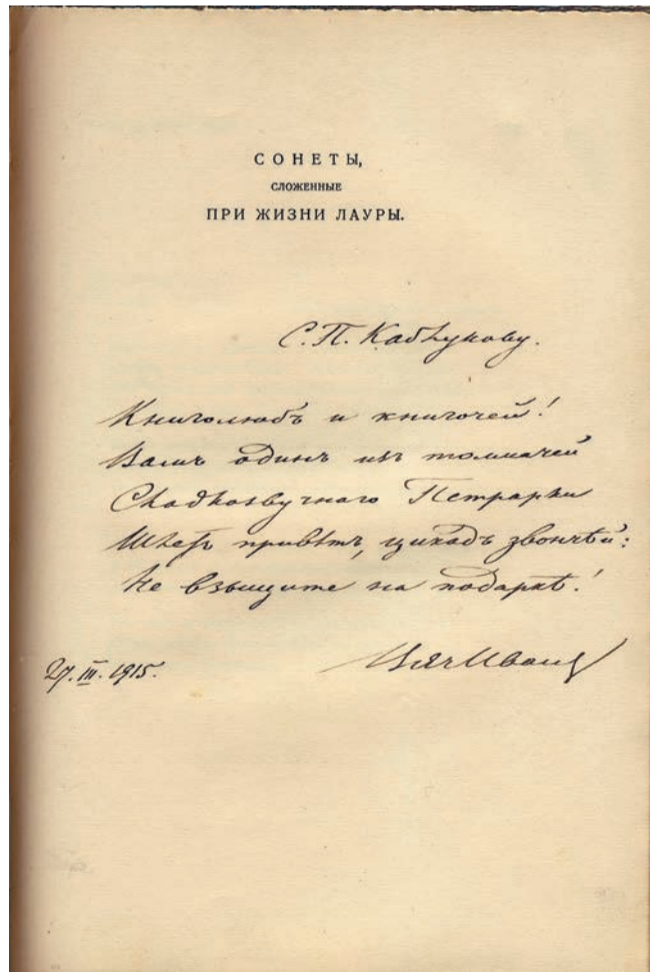 СОНЕТЫ,
СЛОЖЕННЫЕ
ПРИ ЖИЗНИ ЛАУРЫ.
С. П. Каблукову.
Книголюбъ и книгочей!
Вамъ одинъ изъ толмачей
Сладкозвучнаго Петрарки
Шлетъ привѣтъ, цикадъ звончѣй:
Не взыщите на подаркѣ!
27. III. 1915.
ВячИванов